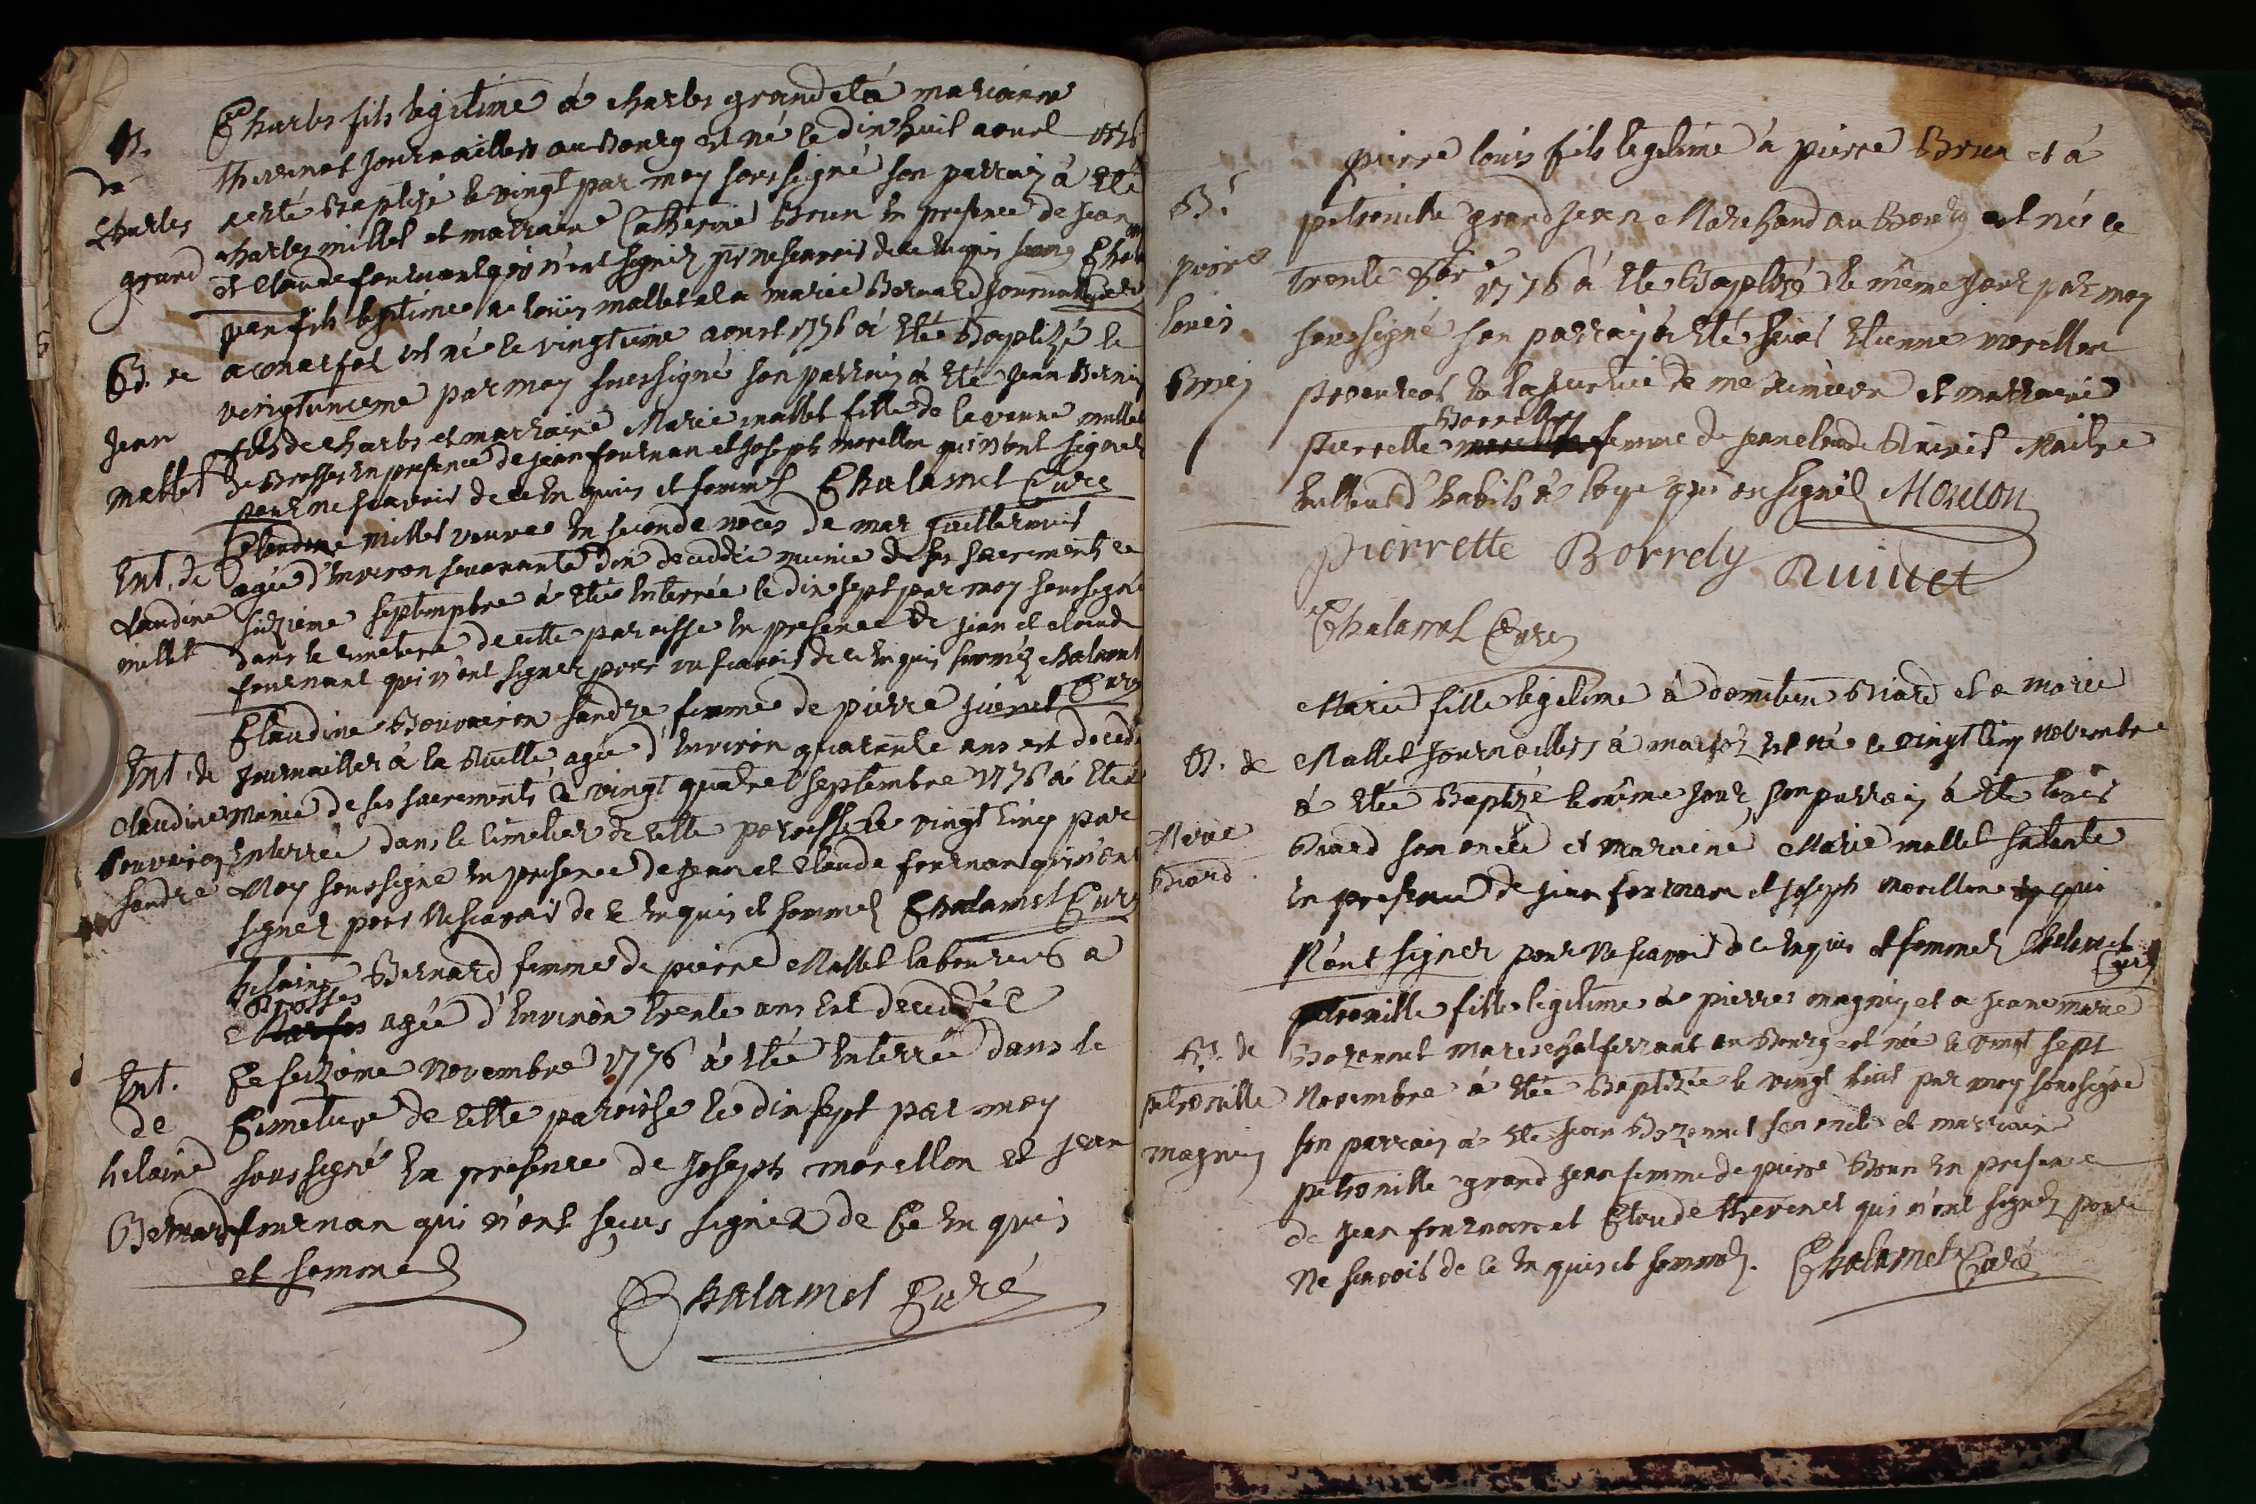 B. de Charles grand
Charles fils legitime à charles grand et à mariane
thevenet journailler au Bourg est né le dix huit aoust 1776
a été Baptisé le vingt par moy soussigné son parrain à été
charles millet et marraine Catherine Brun en presence de jean
et Claude fournant qui n'ont signer pr ne scavoir de ce enquis
B. de jean mallet
jean fils legitime a louis mallet et a marie Bernard journaillier
a marfot est né le vingtieme aoust 1776 à été Baptizé le
vingtunieme par moy soussigné son parrain à été jean Bernard
fils de charles et marraine Marie mallet fille de
de Brosses en presence de jean fournan et joseph morellon qui n'ont signer
pour ne scavoir de ce enquis et sommez Chalamet Curé
Ent. de claudine millet
Claudine millet veuve en seconde noces de
agée d'environ soixante dix decedée munie de ses sacrements le
siezieme septempbre à été enterrée le dix sept par moy soussigné
dans le cimetiere de cette paroisse en presence de jean et claude
fournant qui n'ont signer pour ne scavoir de ce enquis sommez Chalamet
Curé
Ent. de claudine Bouvairon sandre
Claudine Bouvairon sandre femme de pierre
journaillier à la Ruelle agée d'environ quarante ans est decedée
munie de ses sacrements le vingt quatre septembre 1776 à été
enterrée dans le cimetier de cette paroisse le vingt cinq par
Moy soussigné en presence de jean et Claude fournan qui n'ont
signer pour ne scavoir de ce enquis et sommez Chalamet Curé
Ent. de helaine Bernard
helaine Bernard femme de pierre Mallet laboureur a
Brosses
agée d'environ trente ans est decedée
le seizième novembre 1776 à été enterrée dans le
Cimetiere de cette paroisse le dix sept par moy
soussigné en presence de joseph morellon et jean
fournan qui n'ont sçus signer de ce enquis
et sommez
Chalamet Curé
B. pierre louis Brun
pierre louis fils legitime à pierre Brun et à
petronille grandjean Marchand au Bourg est né le
trente 8bre 1776 à été Baptizé le même jour par moy
soussigné son parrain à été etienne morellon
procureur en la justice de et marraine
Borrely
pierrette femme de jean claude Ruivet Maitre
tailleur d'habits à loye qui on signéz Morellon
pierrette Borrely Ruivet
Chalamet Curé
B. de Marie Biard
Marie fille legitime à Biard et a marie
Mallet journaillier à marfoz est né le vingt cinq novembre
à été Baptizé le même jour son parrain à été louis
Biard son oncle et maraine Marie mallet sa tante
en presence de jean fournan et joseph morellon qui
n'ont signer pour ne scavoir de ce enquis et sommez Chalamet
Curé
B. de petronille magnin
petronille fille legitime à pierre magnin et a jeane marie
Bozonnet mareschal ferrant au Bourg est née le vingt sept
Novembre à été Baptizée le vingt huit par moy soussigné
son parrain à été jean Bozonnet son oncle et marraine
petronille grand jean femme de pierre Brun en presence
de jean fournan et Claude thevenet qui n'ont signez pour
ne scavoir de ce enquis et sommez. Chalamet Curé